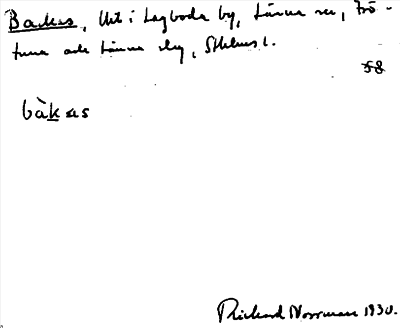 Backas, lht i Lagboda by, Länna sn, Frö-
tuna och Länna slg, Sthlms l.
58
bàkas
Rickard Norrman 1930.